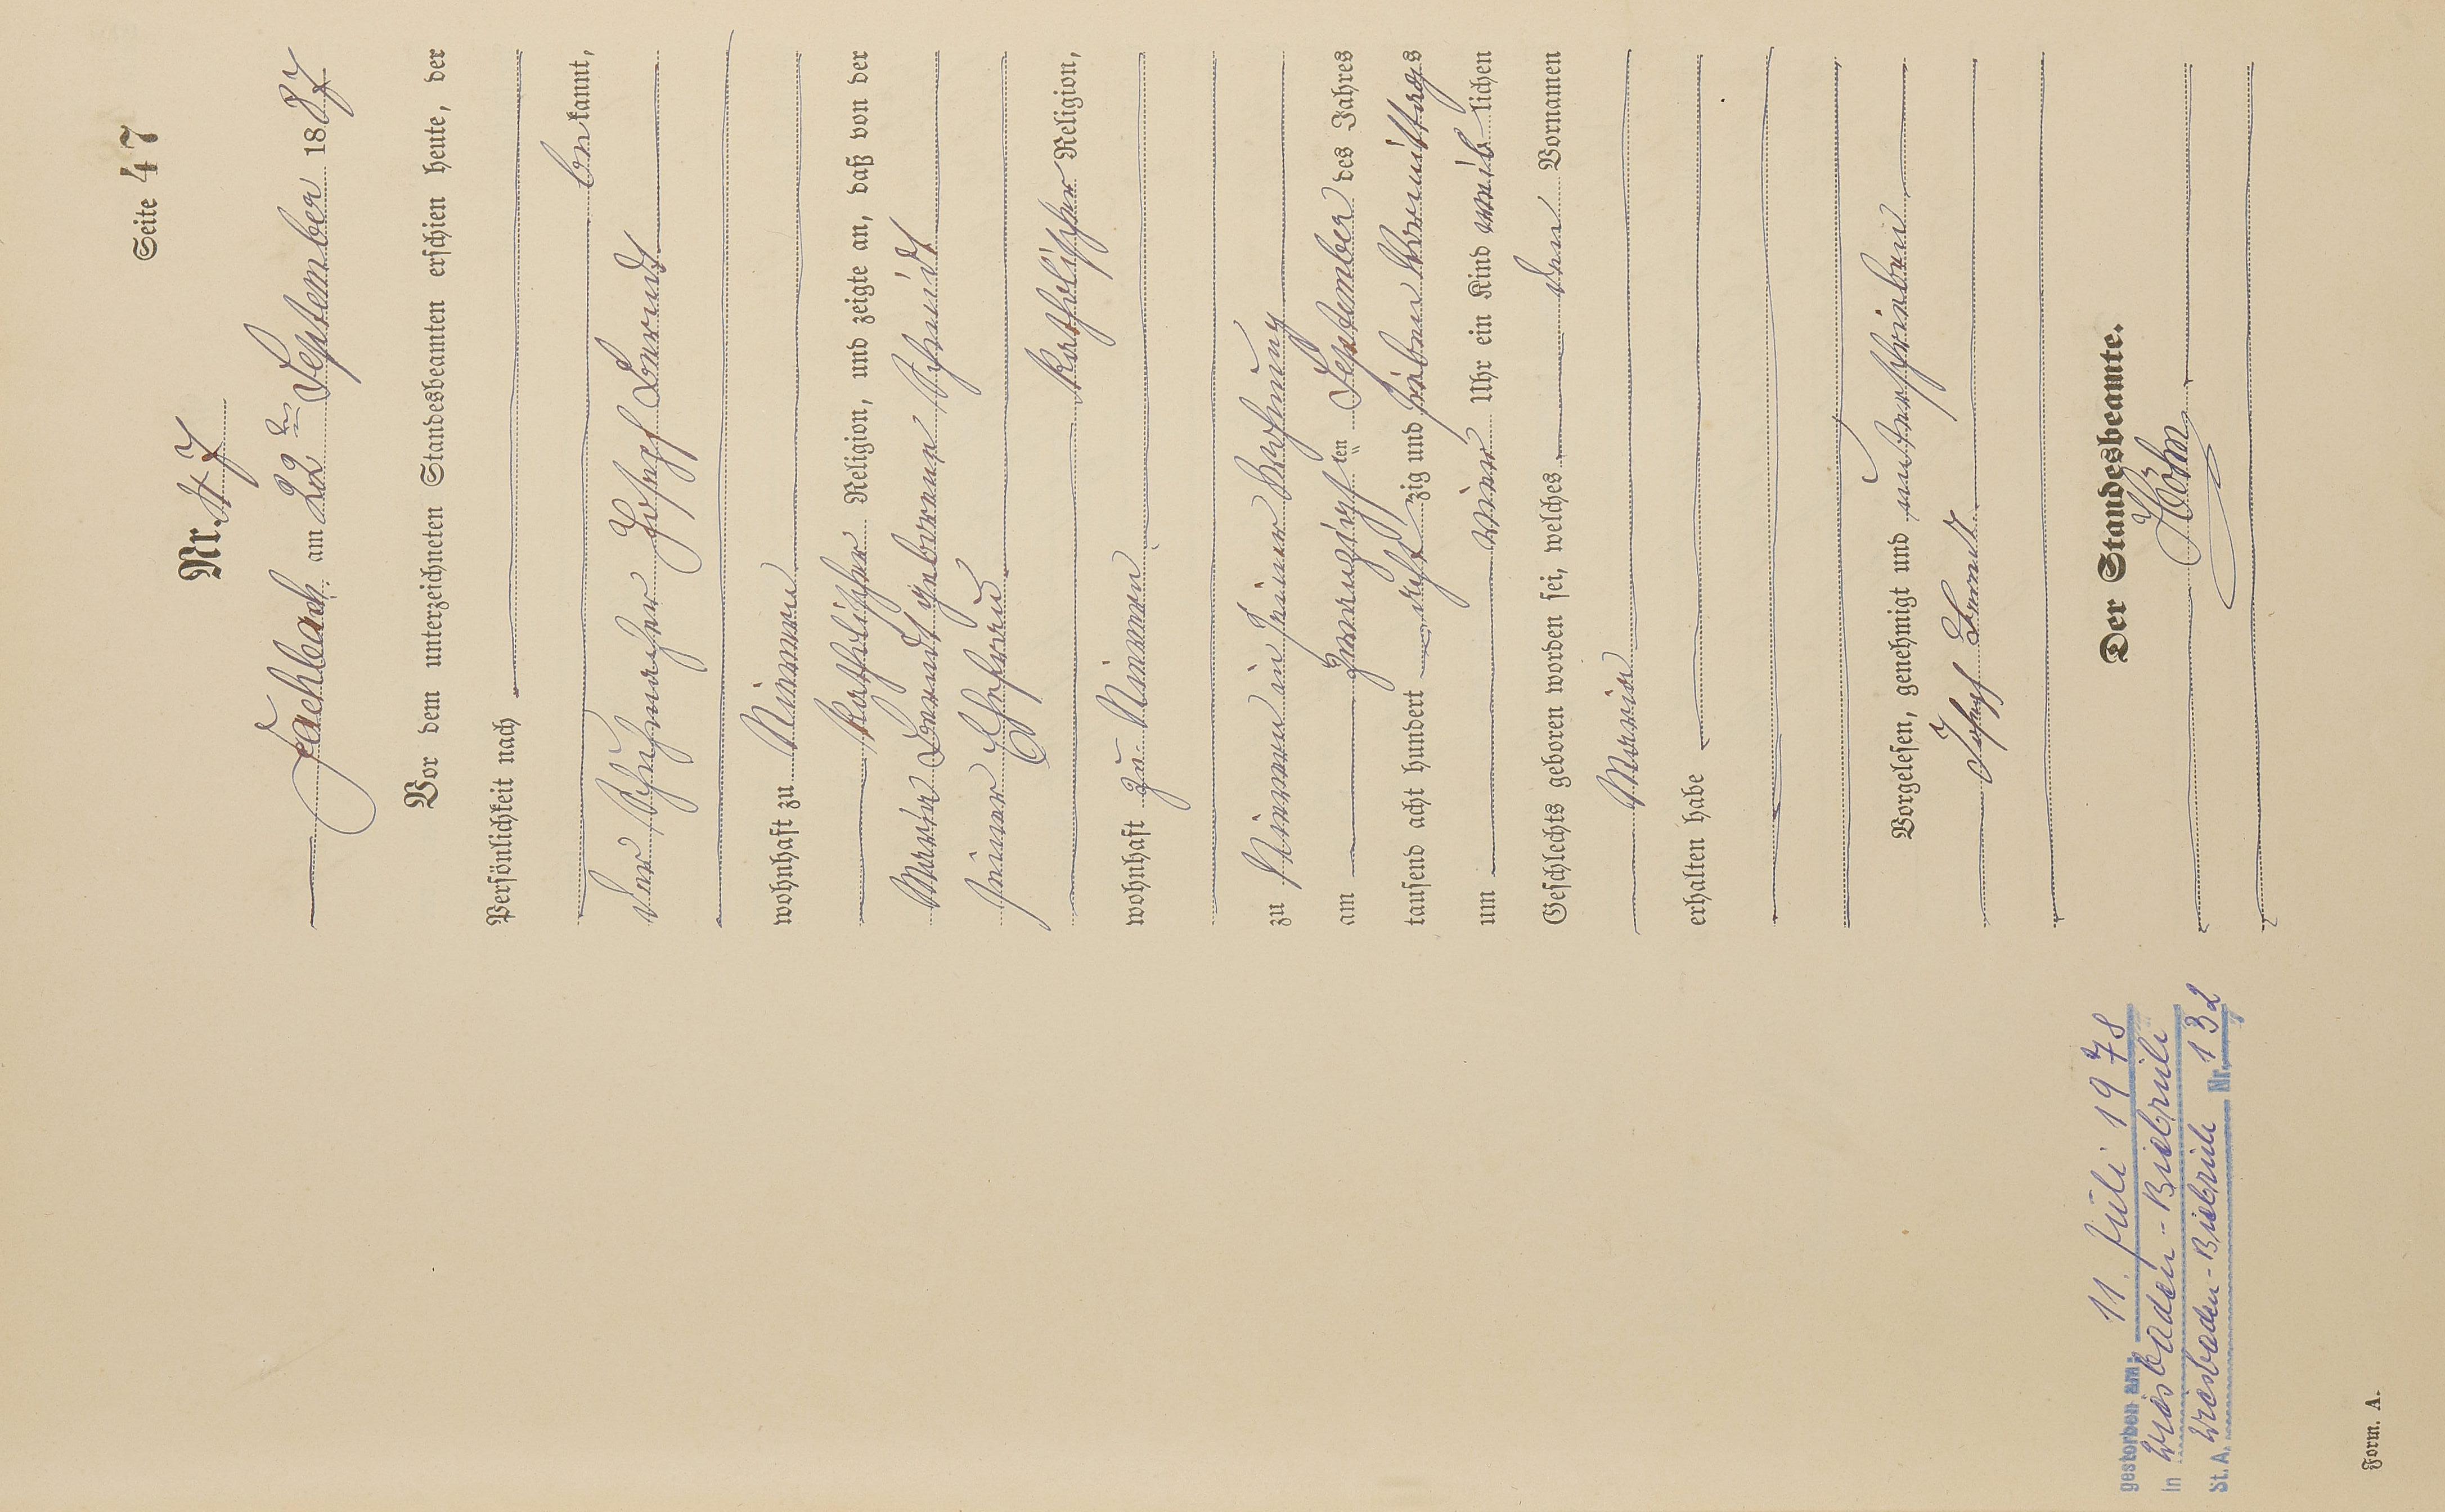 Seite 47
Nr. 47
Fachbach am 22ten September 1887
Vor dem unterzeichneten Standesbeamten erschien heute, der
Persönlichkeit nach
bekannt,
der Schuhmacher Joseph
wohnhaft zu Nievern
katholischer Religion, und zeigte an, daß von der
Maria geborenen Schmidt
seiner Ehefrau
katholischer Religion,
wohnhaft zu Nievern
zu Nievern in seiner Wohnung
am zwanzigsten September des Jahres
tausend acht hundert achtzig und sieben Vormittags
um vier Uhr ein Kind weiblichen
Geschlechts geboren worden sei, welches den Vornamen
Maria
erhalten habe
Vorgelesen, genehmigt und unterschrieben
Josef
Der Standesbeamte.
Höhn
gestorben am: 11. Juli 1978
in Wiesbaden-Biebrich
St. A. Wiesbaden-Biebrich Nr. 132
Form. A.